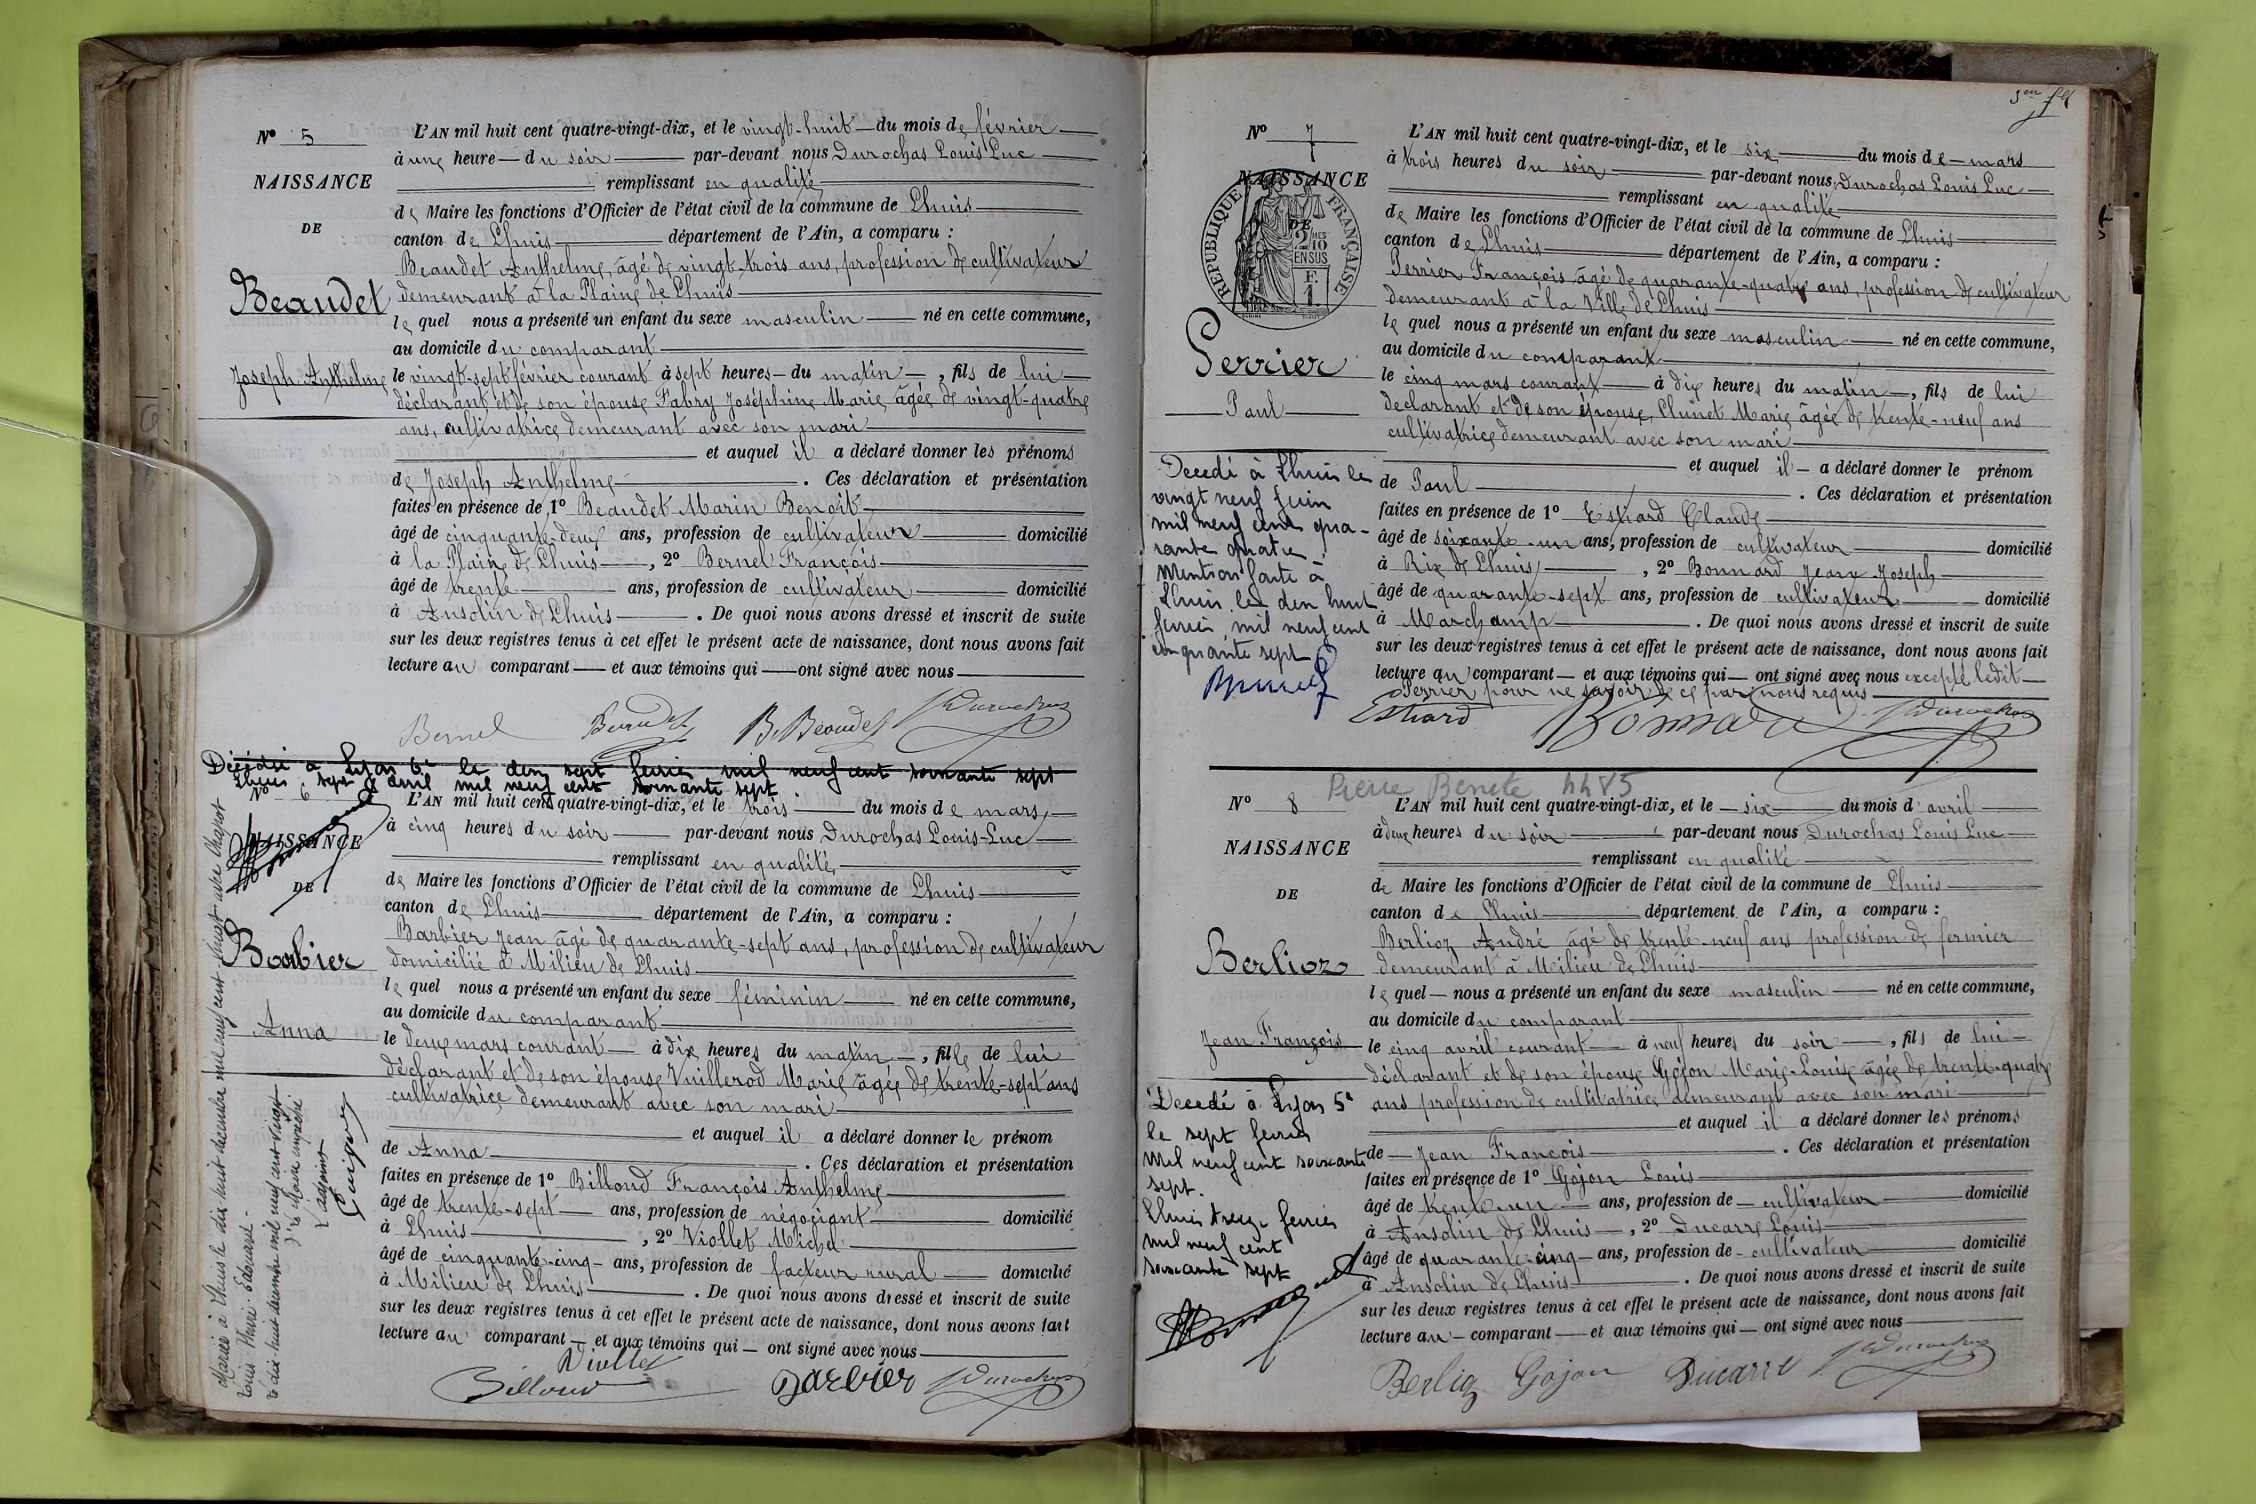 Nº 5
NAISSANCE
DE
Beaudet
Joseph Anthelme
L'AN mil huit cent quatre-vingt-dix, et le vingt-huit du mois de février
à une heure du soir par-devant nous Durochas Louis Luc
remplissant en qualité
de Maire les fonctions d'Officier de l'état civil de la commune de Lhuis
canton de Lhuis département de l'Ain, a comparu :
Beaudet Anthelme, âgé de vingt-trois ans, profession de cultivateur
demeurant à la Plaine de Lhuis
le quel nous a présenté un enfant du sexe masculin né en cette commune,
au domicile du comparant
le vingt-sept février courant à sept heures du matin, fils de lui
déclarant et de son épouse Fabry Joséphine Marie âgée de vingt-quatre
ans, cultivatrice demeurant avec son mari
et auquel il a déclaré donner les prénoms
de Joseph Anthelme. Ces déclaration et présentation
faites en présence de 1º Beaudet Marin Benoit
âgé de cinquante-deux ans, profession de cultivateur domicilié
à la Plaine de Lhuis, 2º Bernel François
âgé de trente ans, profession de cultivateur domicilié
à Ansolin de Lhuis. De quoi nous avons dressé et inscrit de suite
sur les deux registres tenus à cet effet le présent acte de naissance, dont nous avons fait
lecture au comparant et aux témoins qui ont signé avec nous
Bernel Beaudet B. Beaudet Durochas
Décédé à Lyon 6e le dix sept février mil neuf cent soixante sept
Lhuis, sept avril mil neuf cent soixante sept.
Nº 6
NAISSANCE
DE
Barbier
Anna
L'AN mil huit cent quatre-vingt-dix, et le trois du mois de mars,
à cinq heures du soir par-devant nous Durochas Louis-Luc
remplissant en qualité
de Maire les fonctions d'Officier de l'état civil de la commune de Lhuis
canton de Lhuis département de l'Ain, a comparu :
Barbier Jean âgé de quarante-sept ans, profession de cultivateur
domicilié à Milieu de Lhuis
le quel nous a présenté un enfant du sexe féminin né en cette commune,
au domicile du comparant
le deux mars courant à dix heures du matin, fille de lui
déclarant et de son épouse Vuillerod Marie âgée de trente-sept ans
cultivatrice demeurant avec son mari
et auquel il a déclaré donner le prénom
de Anna. Ces déclaration et présentation
faites en présence de 1º Billoud François Anthelme
âgé de trente-sept ans, profession de négociant domicilié
à Lhuis, 2º Viollet Michel
âgé de cinquante-cinq ans, profession de facteur rural domicilié
à Milieu de Lhuis. De quoi nous avons dressé et inscrit de suite
sur les deux registres tenus à cet effet le présent acte de naissance, dont nous avons fait
lecture au comparant et aux témoins qui ont signé avec nous
Viollet
Billoud Barbier Durochas
Mariée à Lhuis le dix huit décembre mil neuf cent vingt avec Chapot
Louis Henri Edouard.
Le dix huit décembre mil neuf cent vingt
Le Maire empêché
L'adjoint
Guigue
Nº 7
NAISSANCE
DE
RÉPUBLIQUE FRANÇAISE
2 MES
10
EN SUS
F.
1
Perrier
Paul
L'AN mil huit cent quatre-vingt-dix, et le six du mois de mars
à trois heures du soir par-devant nous Durochas Louis Luc
remplissant en qualité
de Maire les fonctions d'Officier de l'état civil de la commune de Lhuis
canton de Lhuis département de l'Ain, a comparu :
Perrier François âgé de quarante-quatre ans, profession de cultivateur
demeurant à la Ville de Lhuis
le quel nous a présenté un enfant du sexe masculin né en cette commune,
au domicile du comparant
le cinq mars courant à dix heures du matin, fils de lui
déclarant et de son épouse, Chunet Marie âgée de trente-neuf ans
cultivatrice demeurant avec son mari
et auquel il a déclaré donner le prénom
de Paul. Ces déclaration et présentation
faites en présence de 1º Estiard Claude
âgé de soixante-un ans, profession de cultivateur domicilié
à Rix de Lhuis, 2º Bonnard Jean Joseph
âgé de quarante-sept ans, profession de cultivateur domicilié
à Marchamp. De quoi nous avons dressé et inscrit de suite
sur les deux registres tenus à cet effet le présent acte de naissance, dont nous avons fait
lecture au comparant et aux témoins qui ont signé avec nous excepté ledit
Perrier pour ne savoir de ce par nous requis
Estiard Bonnard Durochas
Décédé à Lhuis le
vingt neuf juin
mil neuf cent qua-
rante quatre.
Mention faite à
Lhuis, le dix huit
février, mil neuf cent
cinquante sept
Pierre Benete 4485
Nº 8
NAISSANCE
DE
Berlioz
Jean François
L'AN mil huit cent quatre-vingt-dix, et le six du mois d'avril
à deux heures du soir par-devant nous Durochas Louis Luc
remplissant en qualité
de Maire les fonctions d'Officier de l'état civil de la commune de Lhuis
canton de Lhuis département de l'Ain, a comparu :
Berlioz André âgé de trente-neuf ans profession de fermier
demeurant à Milieu de Lhuis
le quel nous a présenté un enfant du sexe masculin né en cette commune,
au domicile du comparant
le cinq avril courant à neuf heures du soir, fils de lui
déclarant et de son épouse Gojon Marie-Louise âgée de trente-quatre
ans profession de cultivatrice demeurant avec son mari
et auquel il a déclaré donner les prénoms
de Jean François. Ces déclaration et présentation
faites en présence de 1º Gojon Louis
âgé de trente-un ans, profession de cultivateur domicilié
à Ansolin de Lhuis, 2º Ducarre Louis
âgé de quarante-cinq ans, profession de cultivateur domicilié
à Ansolin de Lhuis. De quoi nous avons dressé et inscrit de suite
sur les deux registres tenus à cet effet le présent acte de naissance, dont nous avons fait
lecture au comparant et aux témoins qui ont signé avec nous
Berlioz Gojon Ducarre Durochas
Décédé à Lyon 5e
le sept février
mil neuf cent soixante
sept.
Lhuis treize février
mil neuf cent
soixante sept